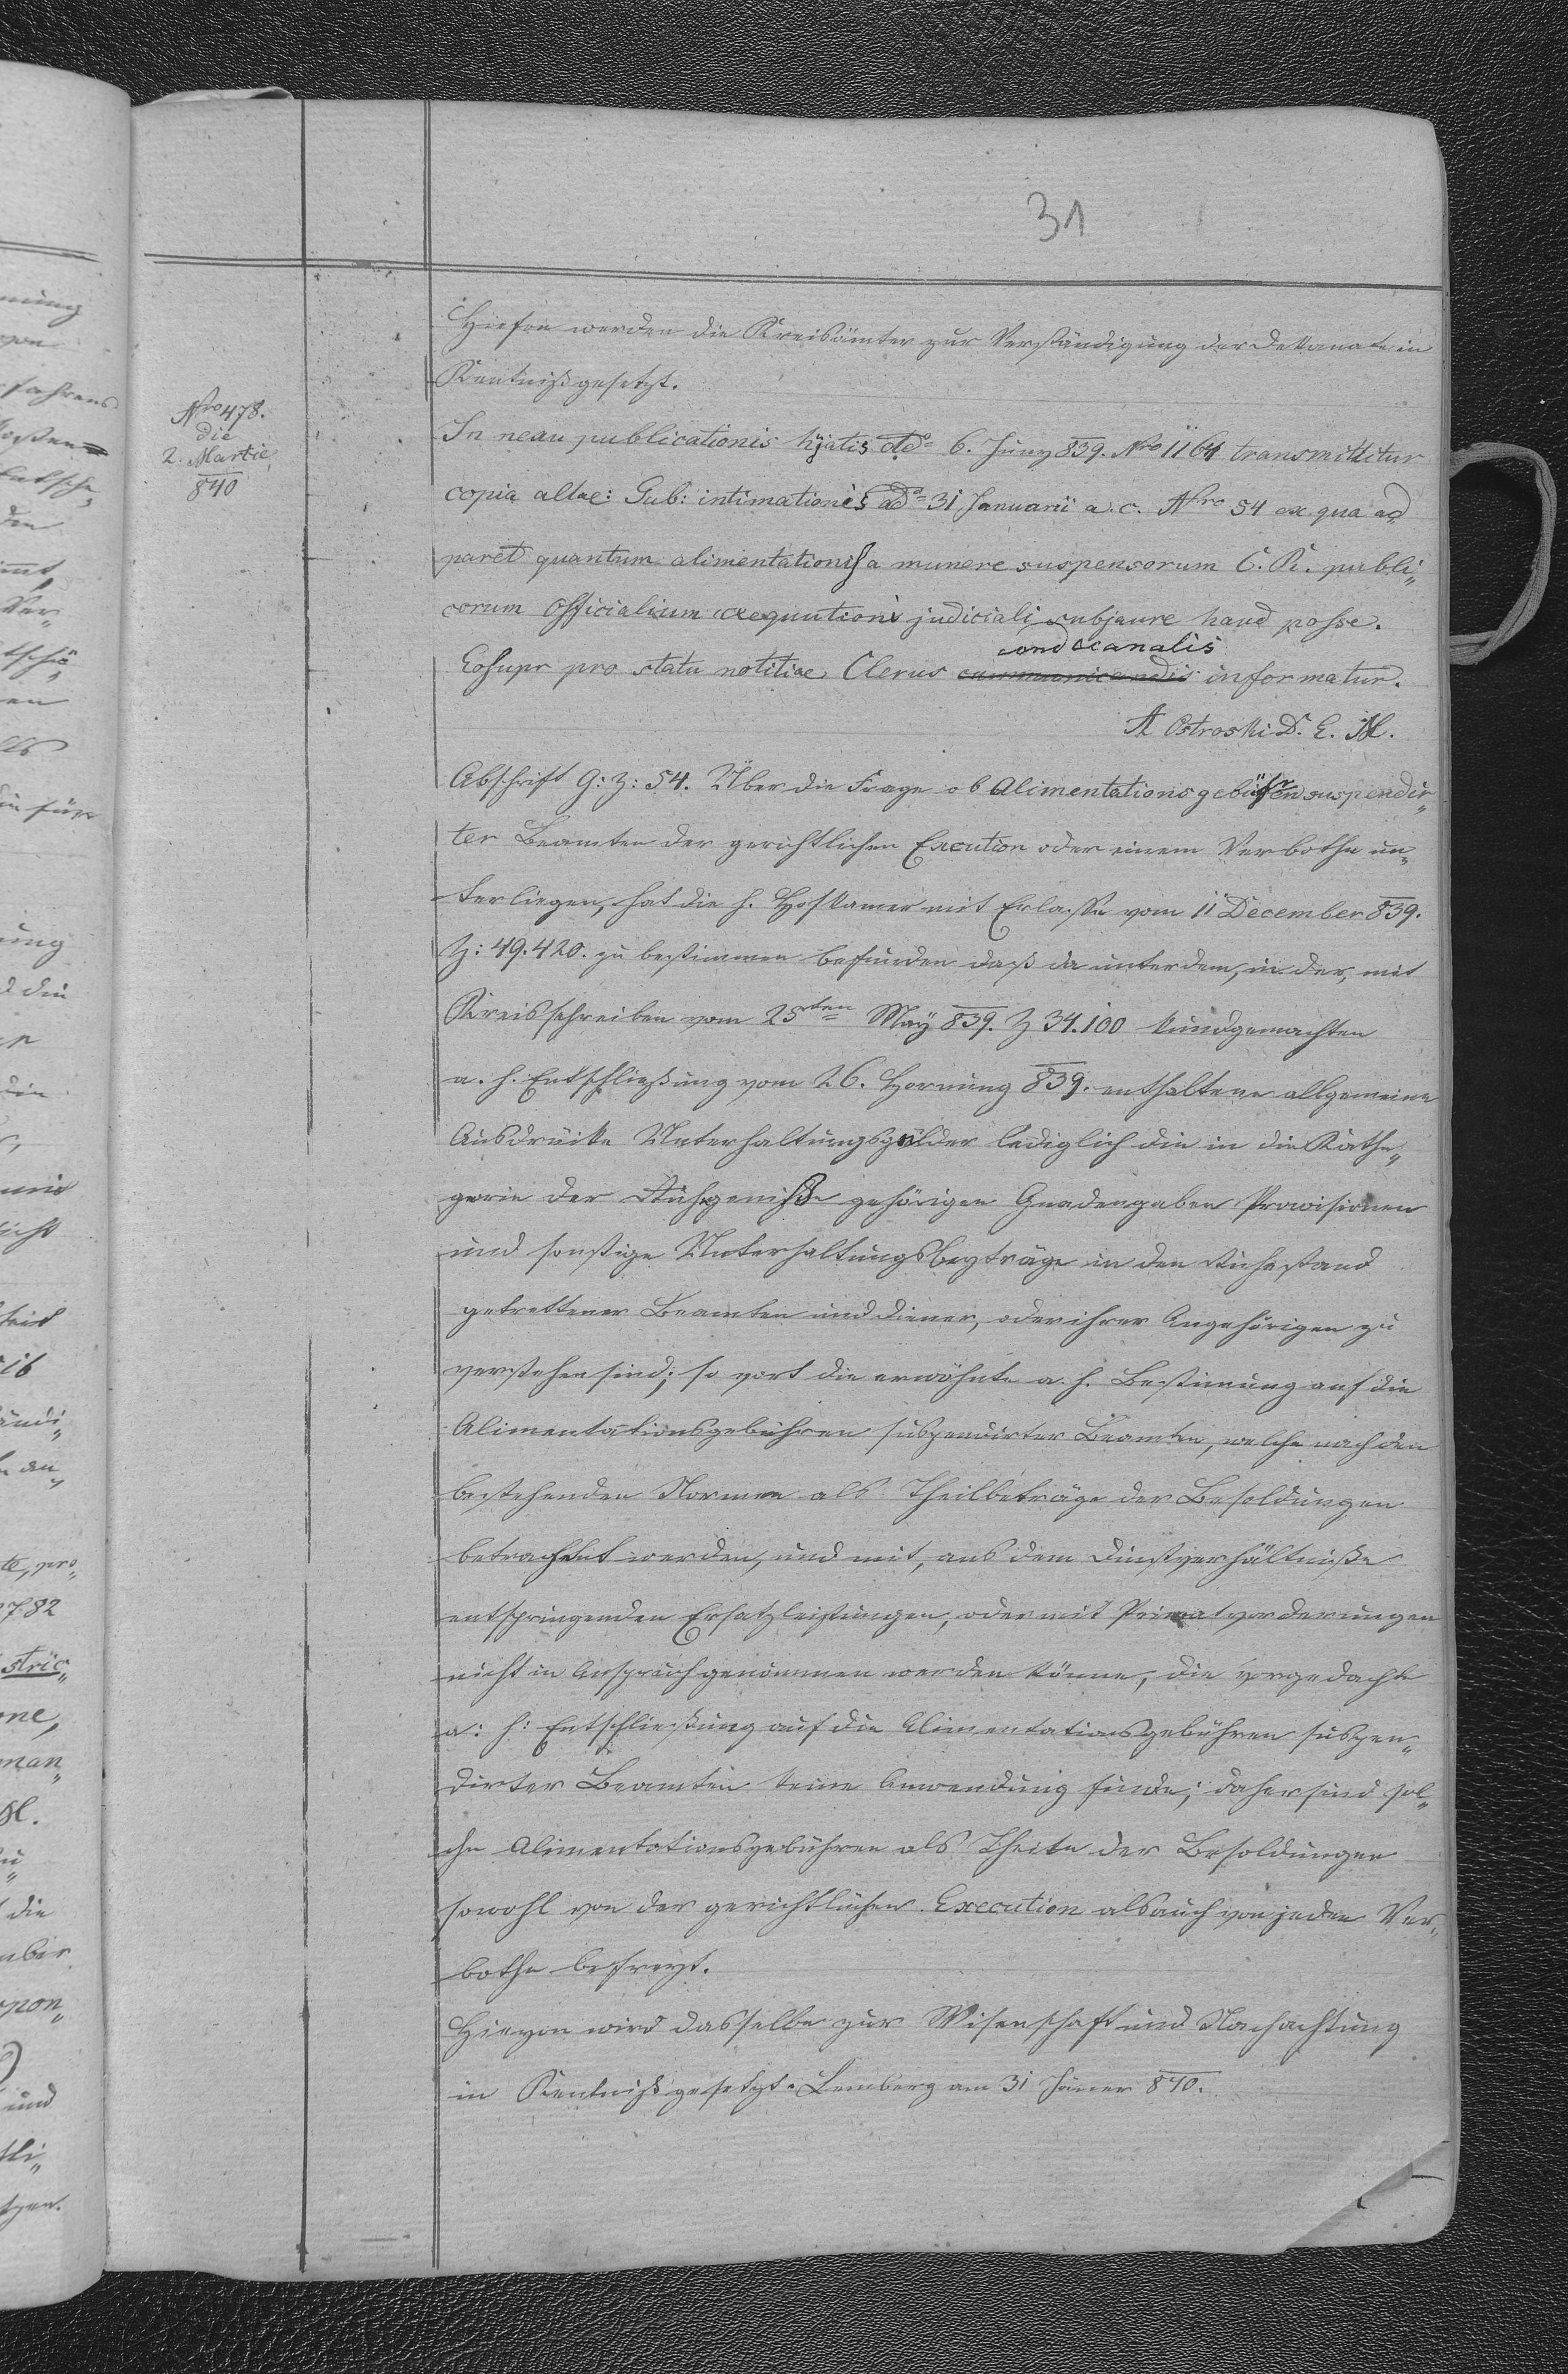 31
Hiefon werden die Kreisämter zur Verständigung der Dekanate in
Kentniß gesetzt.
Nro 478.
die
2. Martie
840
In nexu publicationis hjatis ddo 6. Juny 839. Nro 1164 transmittitur
copia altae: Gub: intimationis ddo 31 Januarii a. c. Nro 54 ex qua ad
paret quantum alimentationis a munere suspensorum C. R. publi„
corum Officialium exequutioni judiciali subjaure haud posse.
condecanalis
Eosupr pro statu notitiae Clerus communicandis informatur.
A Ostroski D. E. M.
Abschrift G: Z: 54. Über die Frage ob Alimentationsgebühren suspendir„
ter Beamten der gerichtlichen Execution oder einem Verbothe un„
terliegen, hat die h. Hofkamer mit Erlasse vom 11 December 839.
Z: 49.420. zu bestimmen befunden daß da unter dem, in der, mit
Kreisschreiben vom 25ten May 839. Z 34.100 kundgemachten
a. h. Entschließung vom 26. Hornung 839. enthaltene allgemeine
Ausdrücke Unterhaltungsgelder lediglich die in die Kathe„
gorie der Ruhgeniße gehörigen Gnadengaben Provisionen
und sonstige Unterhaltungsbeyträge in den Ruhestand
getrettener Beamten und Diener, oder ihrer Angehörigen zu
verstehen sind; so vort die erwöhnte a. h. Bestimung auf die
Alimentationsgebühren suspendirter Beamten, welche nach den
bestehenden Normen als Theilbeträge der Besoldungen
betrachtet werden, und mit, aus dem Dinstverhältniße
entspringenden Ersatzleistungen, oder mit Privatvorderungen
nicht in Anspruch genommen werden könne, die vorgedachte
a: h: Entschließung auf die Alimentationsgebühren suspen„
dirter Beamten keine Anwendung finde; daher sind sol„
che Alimentationsgebühren als Theile der Besoldungen
sowohl von der gerichtlichen Execution als auch von jeden Ver„
bothe befreyt.
Hievon wird dasselbe zur Wisenschaft und Nachachtung
in Kentniß gesetzt. Lemberg am 31 Jäner 840.